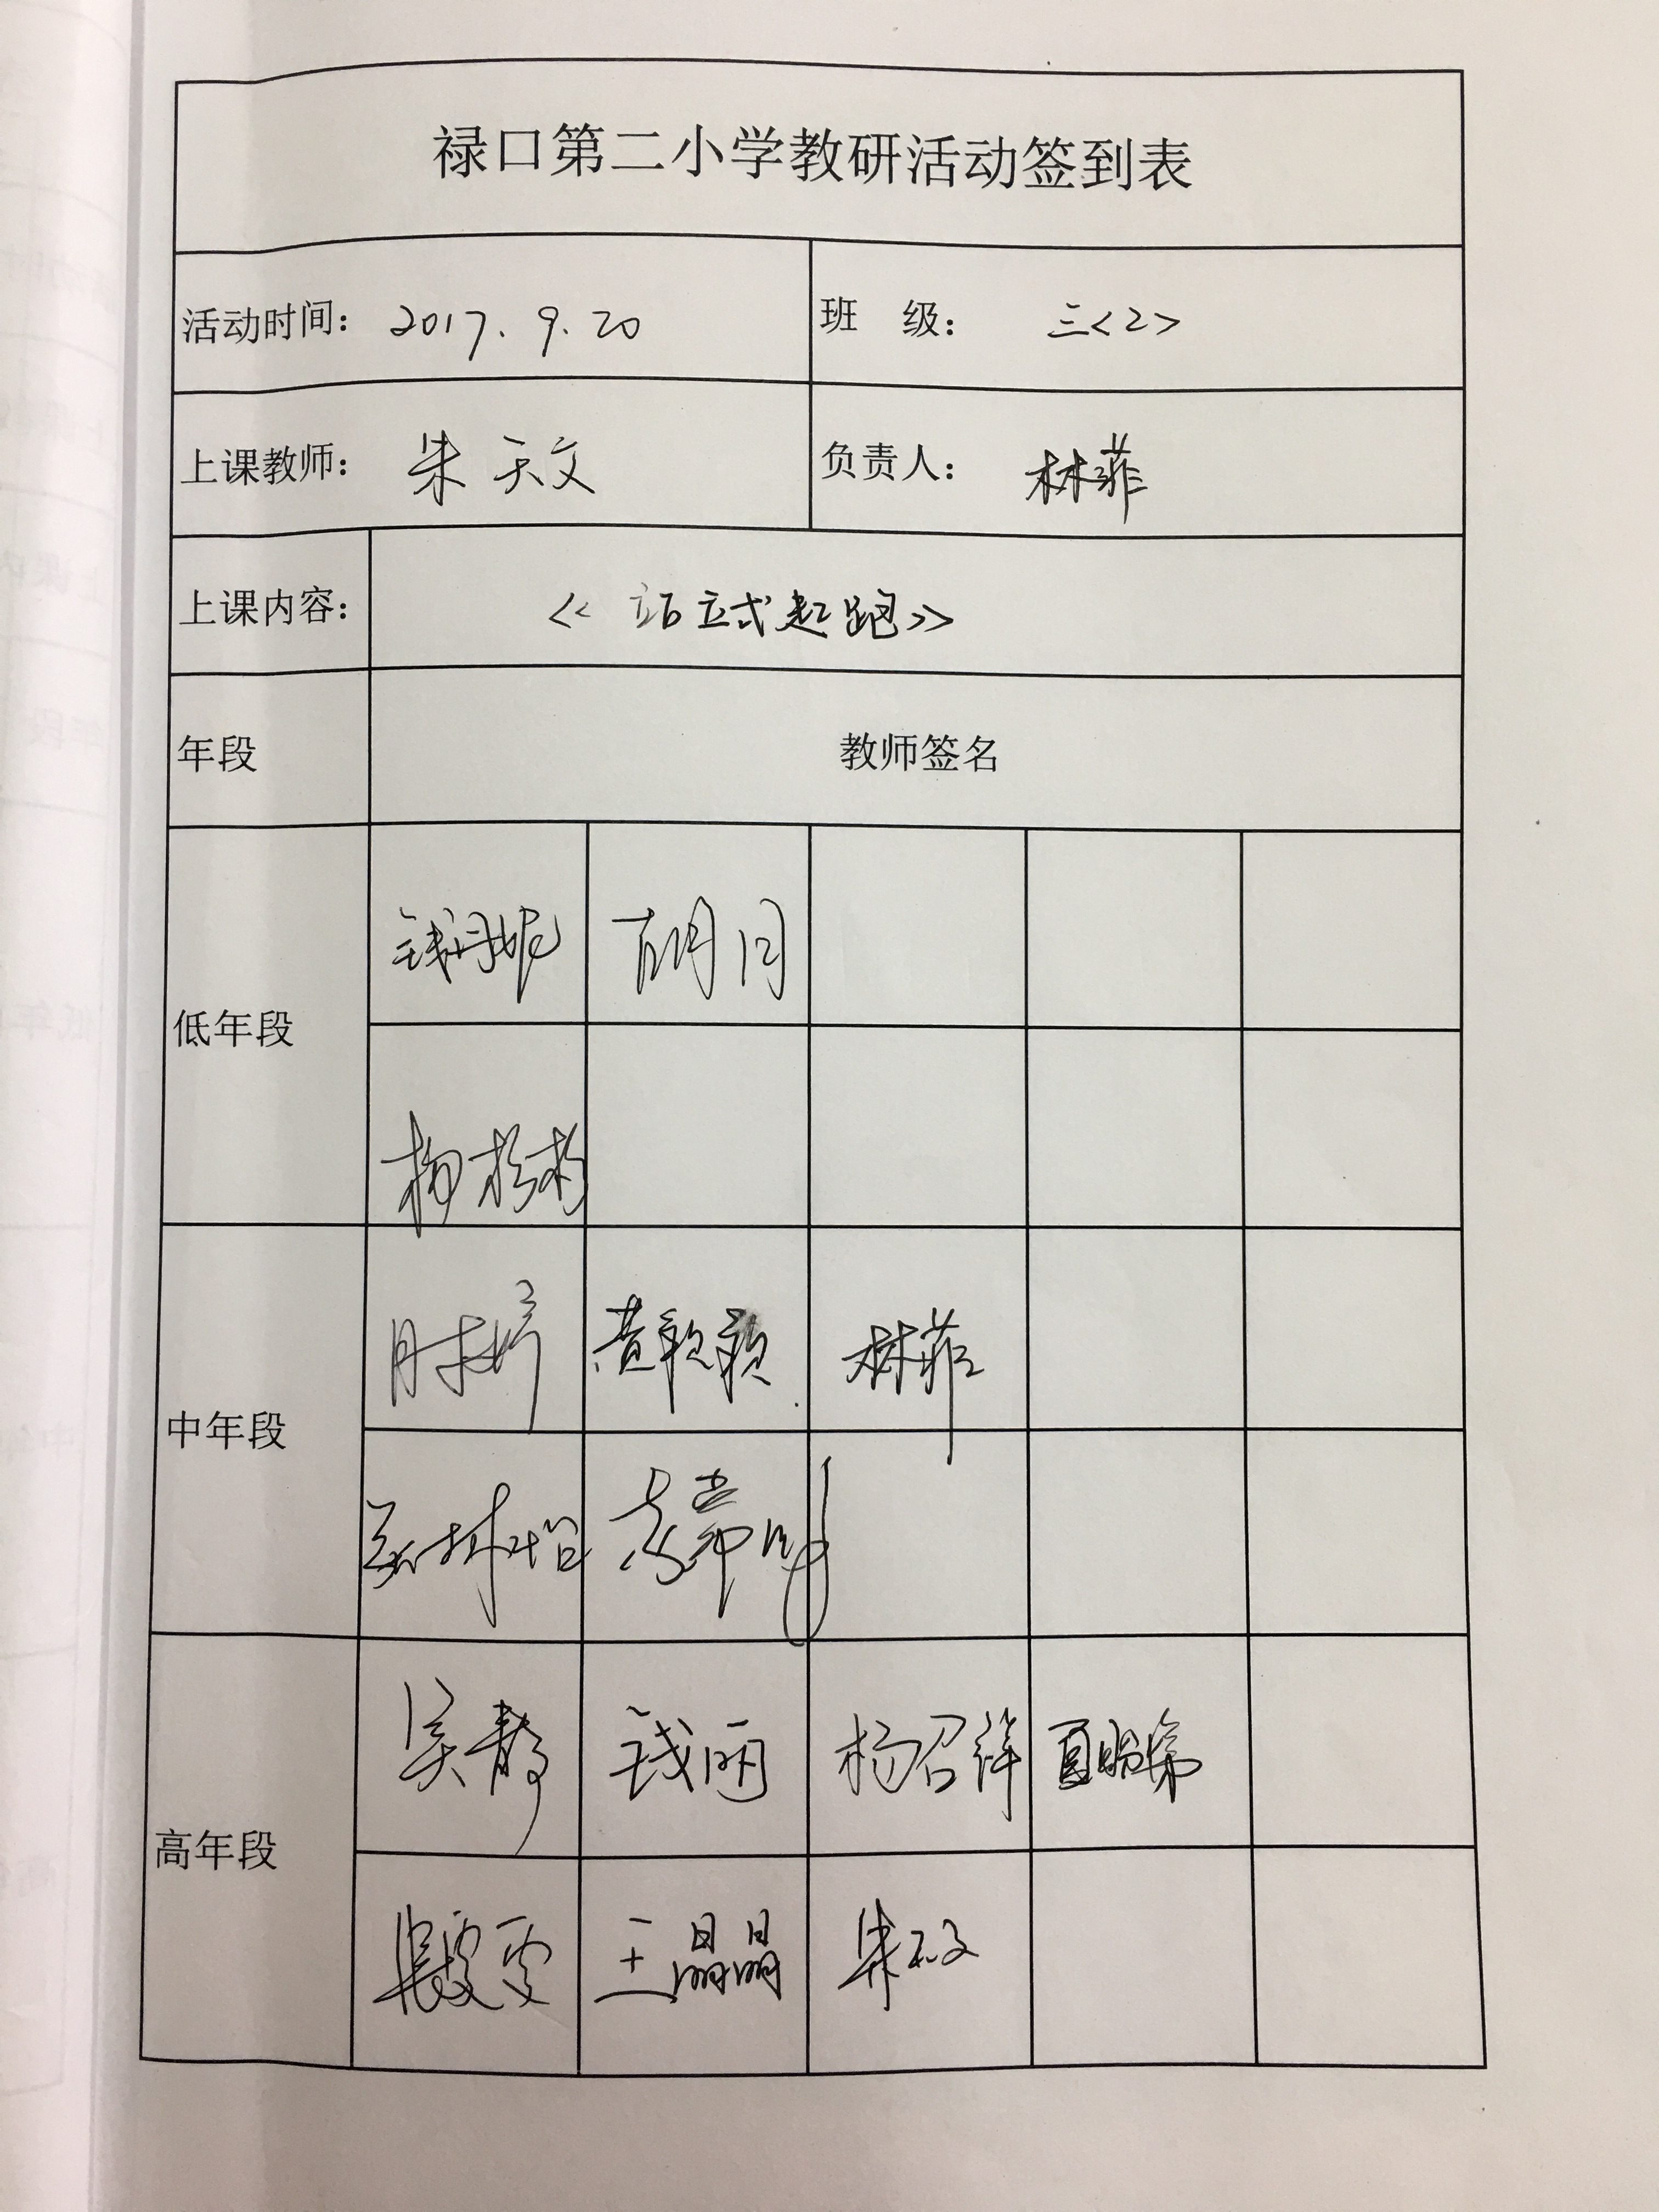 禄口第二小学教研活动签到表
活动时间： 2017.9.20 班 级： 三<2>
上课教师： 朱天文 负责人： 林菲
上课内容： << 站立式起跑>>
年段 教师签名
低年段
钱丹妮 胡月
杨杉杉
中年段
林菲
高年段
吴静 钱丽 杨召祥
王晶晶 朱天文